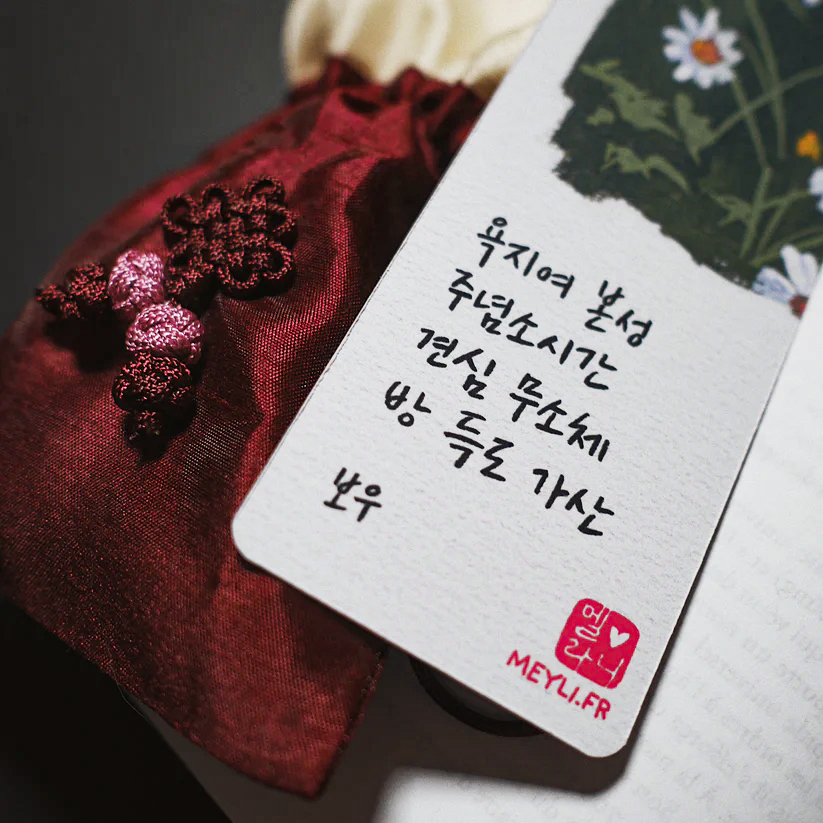 욕지여 본성
주념소시간
견심 무소체
방 득로 가산
보우
멜라니
MEYLI.FR